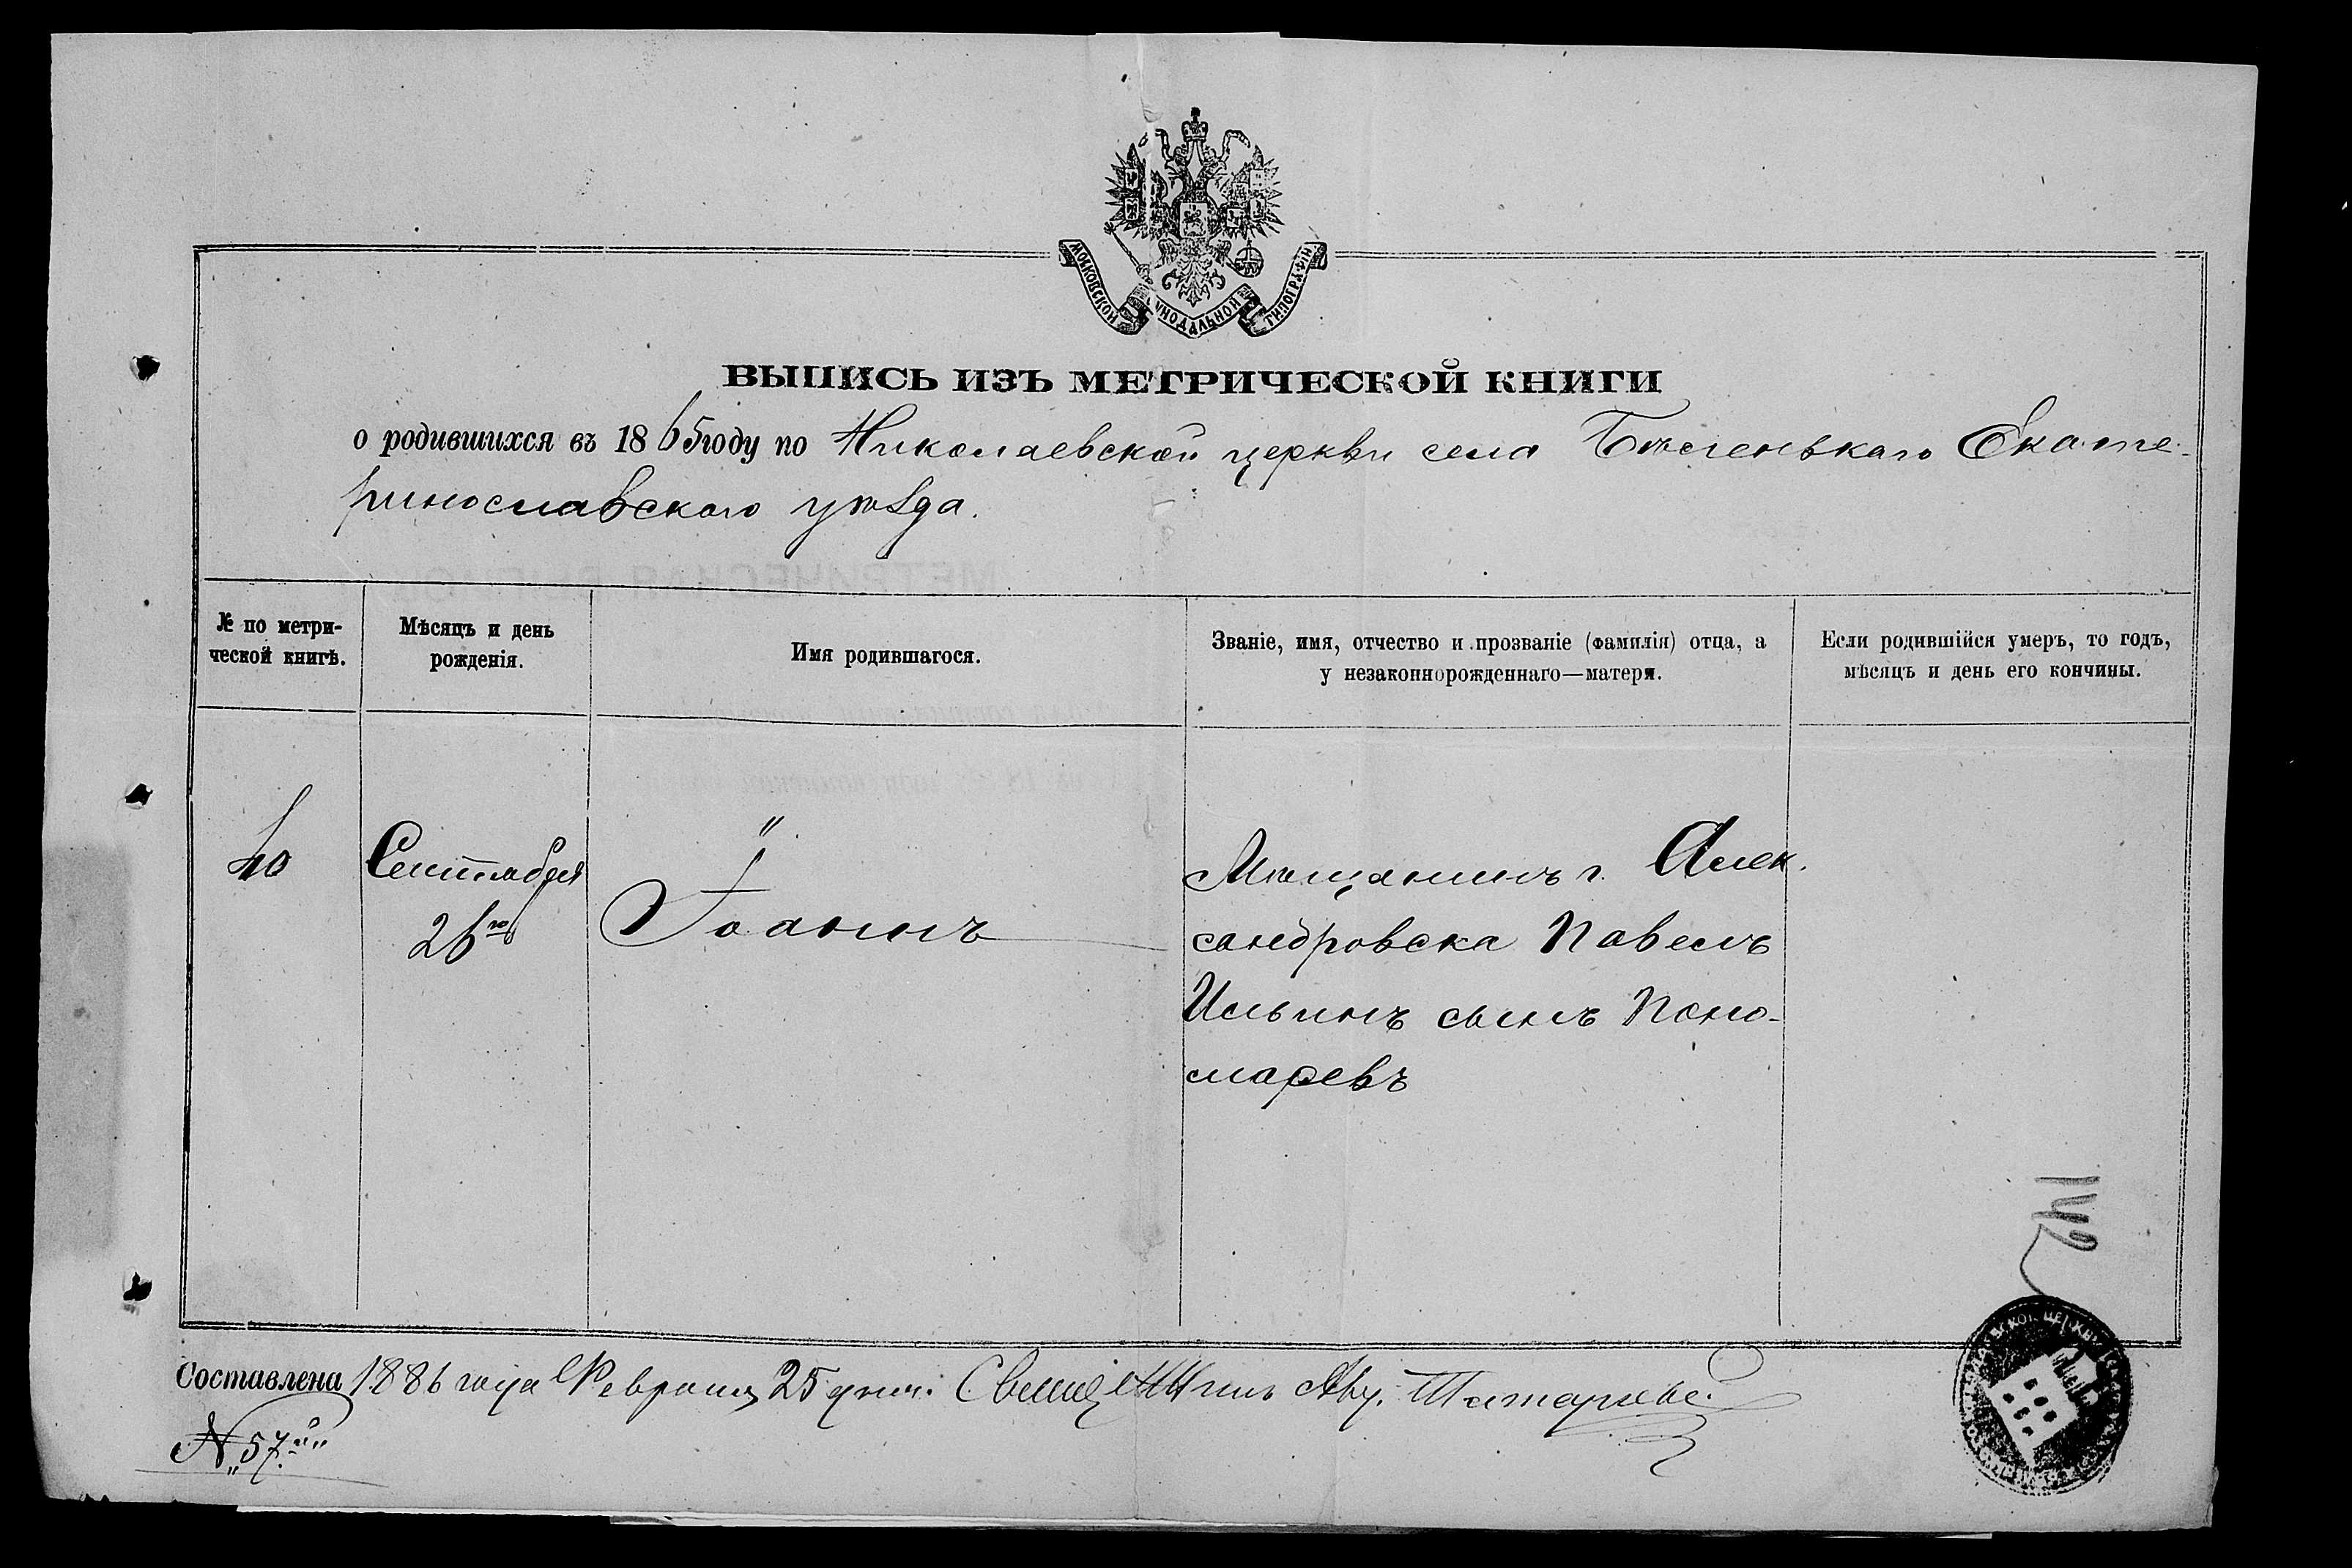 МОСКОВСКОЙ СѴНОДАЛЬНОЙ ТИПОГРАФІИ
ВЫПИСЬ ИЗЪ МЕТРИЧЕСКОЙ КНИГИ
о родившихся въ 1865 году по Николаевской церкви села Бѣленькаго Екате-
ринославскаго уѣзда.
№ по метри-
ческой книгѣ.
Мѣсяцъ и день
рожденія.
Имя родившагося.
Званіе, имя, отчество и прозваніе (фамилія) отца, а
у незаконнорожденнаго—матери.
Если родившійся умеръ, то годъ,
мѣсяцъ и день его кончины.
40
Сентября
26го
Іоаннъ
Мѣщанинъ г. Алек-
сандровска Павелъ
Ильинъ сынъ Поно-
маревъ
142
Составлена 1886 года Февраля 25 дня. Священникъ
№ 57й